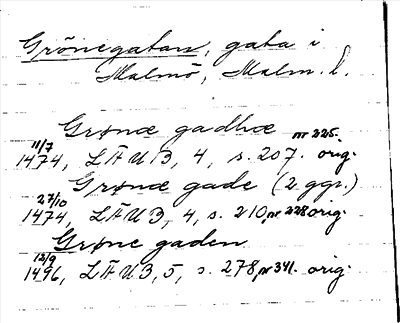 Grönegatan, gata i
Malmö, Malm. l.
Grønæ gadhæ nr 225.
11/7 1474, LÄUB, 4, s. 207. orig.
Grønæ gade (2 ggr.)
27/10 1474, LÄUB, 4, s. 210, nr 228 orig.
Grøne gaden
12/9 1496, LÄUB, 5, s. 278, nr 341. orig.